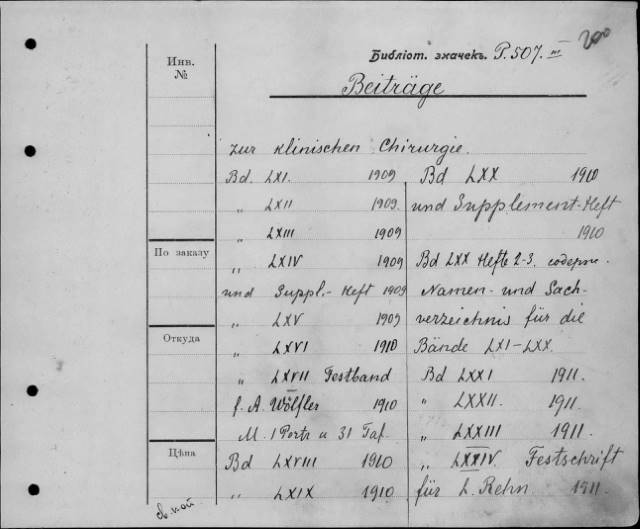 200
Библіот. значекъ. P. 507. III
Beiträge
Инв.
№
По заказу
Откуда
Цѣна
zur klinischen Chirurgie.
Bd. LXI. 1909
„ LXII 1909.
„ LXIII 1909
„ LXIV 1909
und Suppl.- Heft 1909
„ LXV 1909
„ LXVI 1910
„ LXVII Festband
f. A. Wölfler 1910
M. 1 Portr u 31 Taf.
Bd LXVIII 1910
„ LXIX 1910
Bd LXX 1910
und Supplement-Heft
1910
Bd LXX Hefte 2-3. содерж.
Namen- und Sach-
verzeichnis für die
Bände LXI-LXX.
Bd LXXI 1911.
„ LXXII. 1911.
„ LXXIII 1911.
„ LXXIV. Festschrift
für L. Rehn 1911.